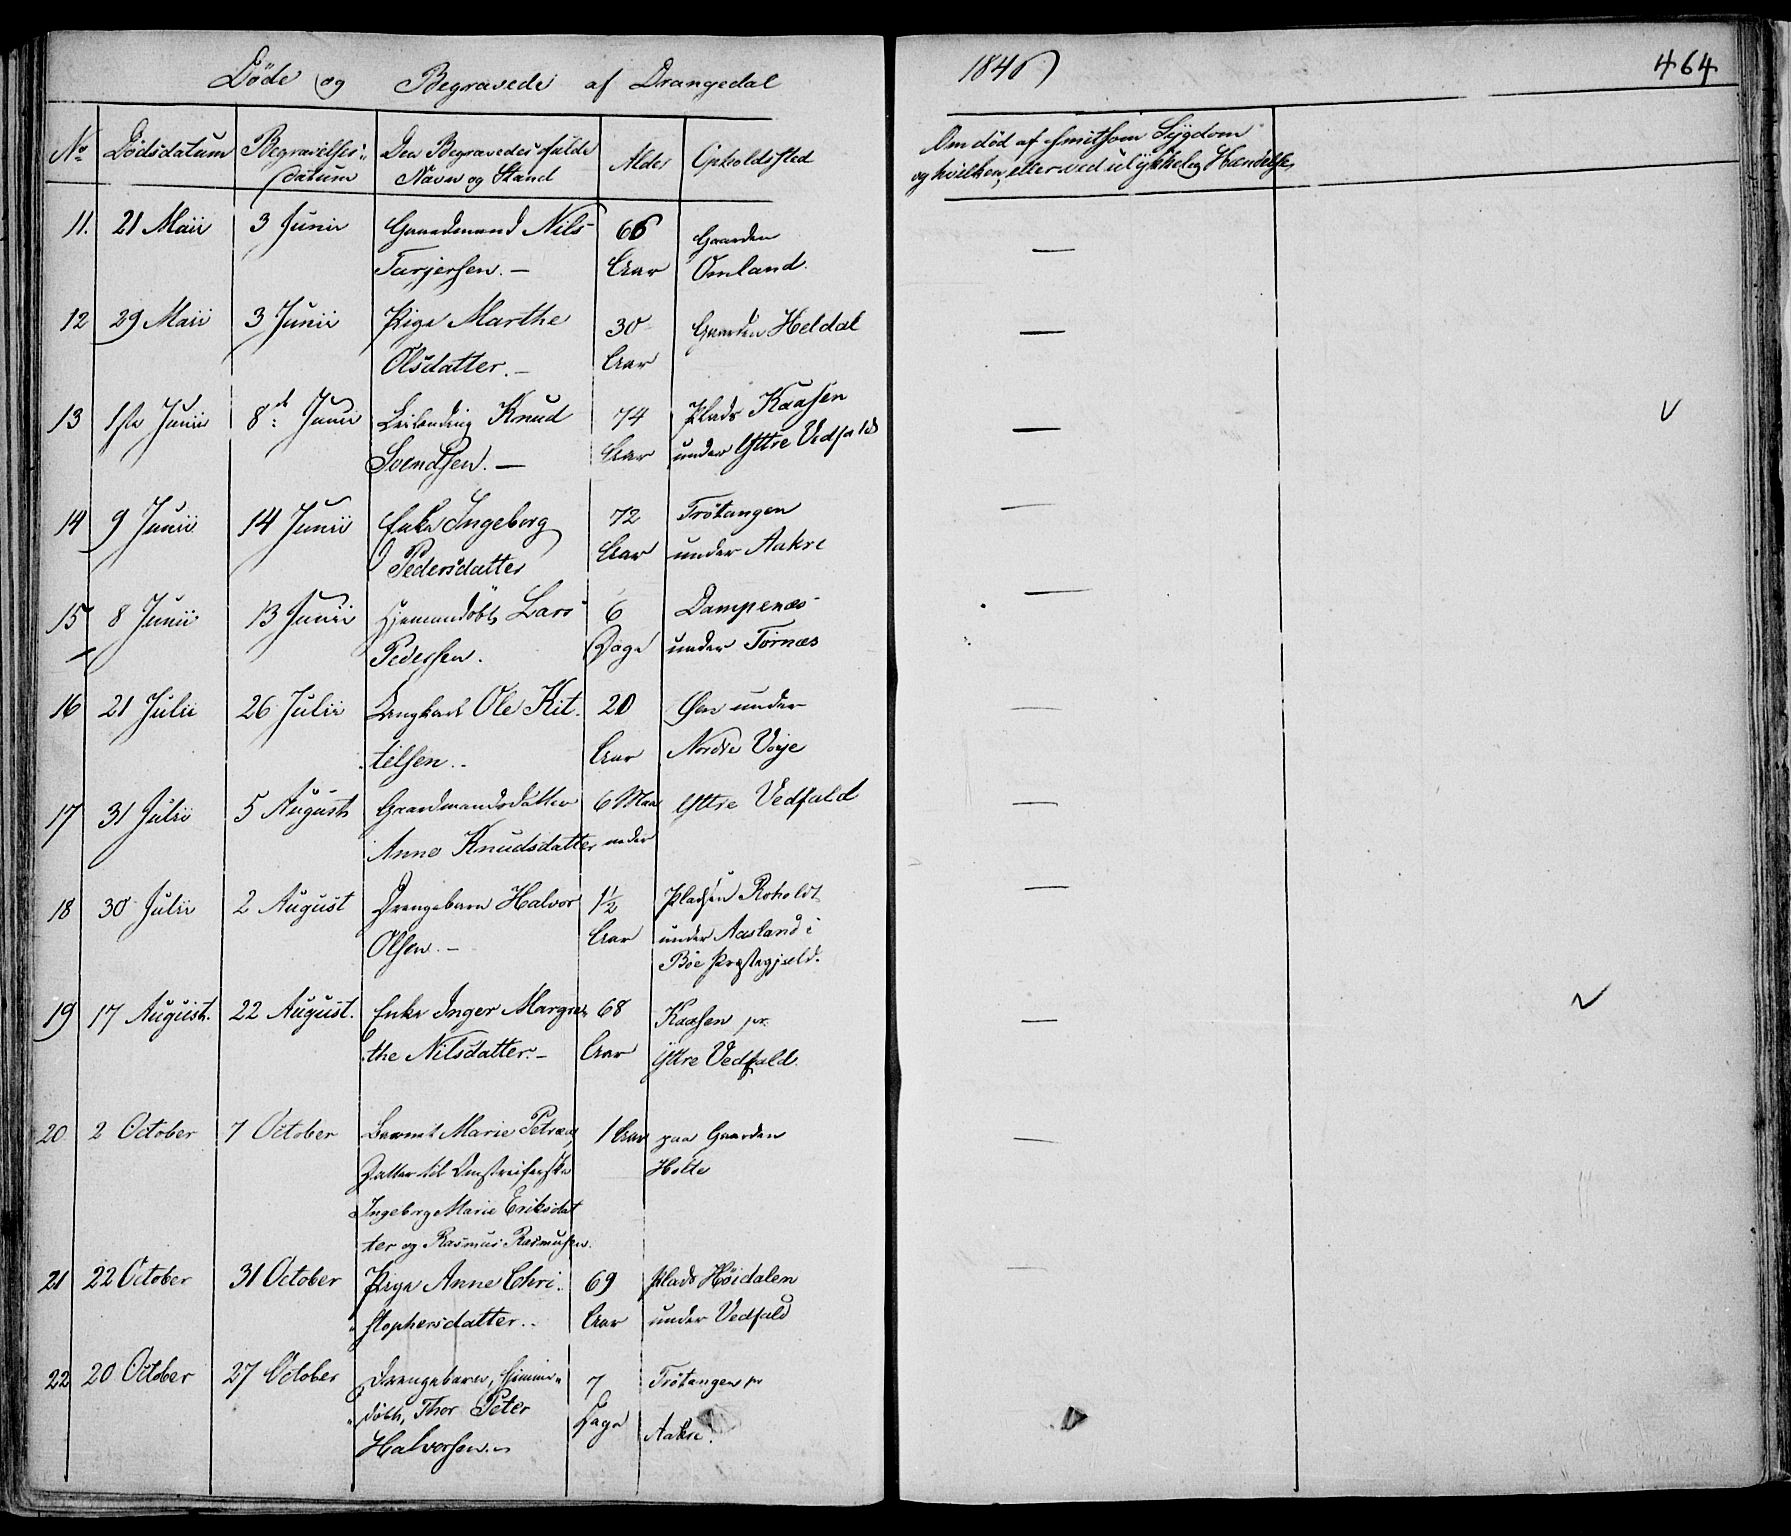 Døde og Begravede af Drangedal
1846
464
No Dødsdatum Begravelses- datum Den Begravedes fulde Navn og Stand Alder Opholdssted Om død af smitsom Sygdom og hvilken, eller ved ulykkelig Hændelse
11. 21 Maii 3 Junii Gaardmand Nils 66 Gaarden
Tarjersen. — Aar Omland. —
12 29 Maii 3 Junii Pige Marthe 30 Gaarden Heldal —
Olsdatter. — Aar
13 1ste Junii 8de Junii Leilending Knud 74 Plads Kaasen
Svendsen. — Aar under Yttre Vedfald —
14 9 Junii 14 Junii Enke Ingeborg 72 Trøtangen —
Pedersdatter Aar under Aakre
15 8 Junii 13 Junii Hjemmedøbt Lars 6 Dampenæs —
Pedersen. Dage under Tørnæs
16 21 Julii 26 Julii Ungkarl Ole Kit- 20 Øen under —
telsen.. Aar Nordre Voje
17 31 Julii 5 August Gaardmandsdatter 6 Maa Yttre Vedfald —
Anne Knudsdatter neder
18 30 Julii 2 August Drengebarn Halvor 1½ Pladsen Roholdt —
Olsen. — Aar under Aasland i
Bøe Præstegjeld.
19 17 August. 22 August. Enke Inger Margre 68 Kaasen pr. —
the Nilsdatter. — Aar Yttre Vedfald.
20 2 October 7 October Barnet Marie Petrea, 1 Aar paa Gaarden —
Datter til Omstreiferske Holte
Ingeborg Marie Eriksdat
ter og Rasmus Rasmusen.
21 22 October 31 October Pige Anne Chri- 69 Plads Høidalen —
stophersdatter.. Aar under Vedfald
22 20 October 27 October Drengebarn, hjemme- 7 Trøtangen pr
døbt, Thor Peter Dage Aakre.
Halvorsen.